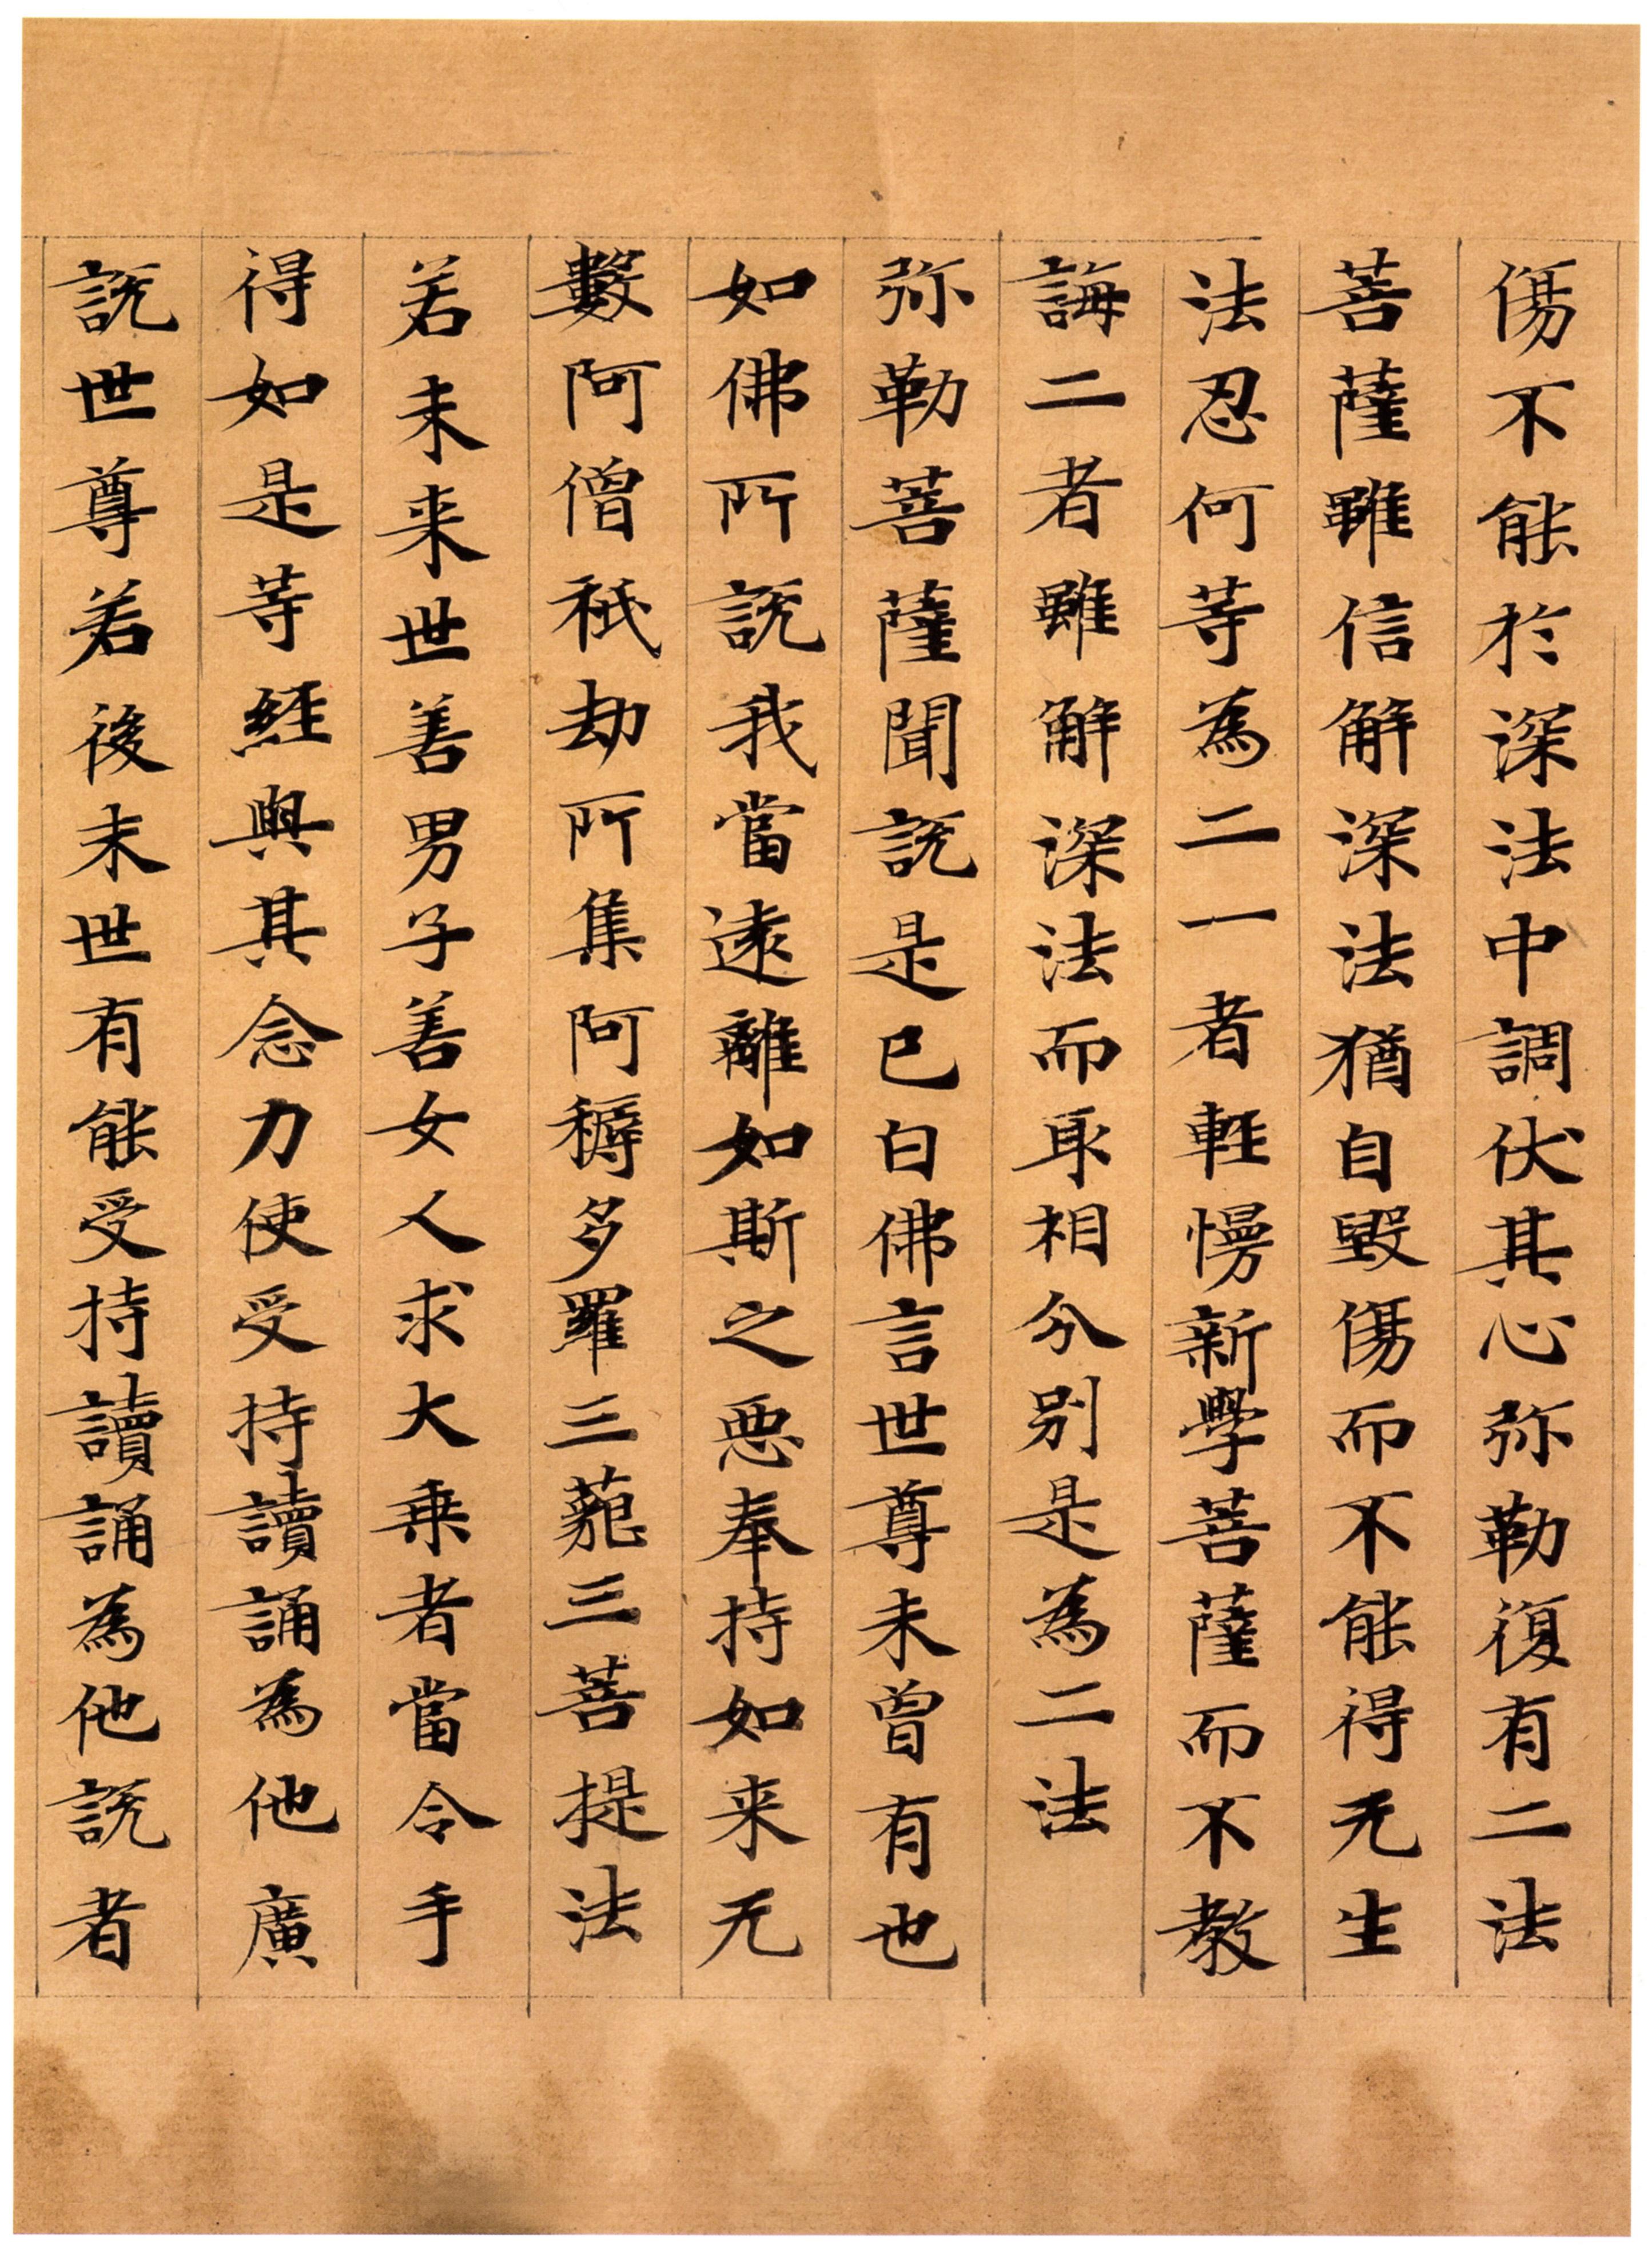 傷不能於深法中調伏其心弥勒復有二法
菩薩雖信解深法猶自毀傷而不能得无生
法忍何等為二一者輕慢新學菩薩而不教
誨二者雖解深法而取相分別是為二法
弥勒菩薩聞說是已白佛言世尊未曾有也
如佛所說我當遠離如斯之惡奉持如来无
數阿僧祇劫所集阿耨多羅三藐三菩提法
若未来世善男子善女人求大乗者當令手
得如是等經與其念力使受持讀誦為他廣
說世尊若後末世有能受持讀誦為他說者